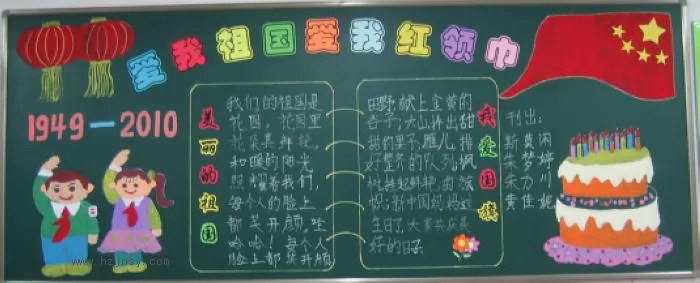 爱我祖国爱我红领巾
1949—2010
美丽的祖国
我们的祖国是
花园，花园里
花朵真鲜艳，
和暖的阳光
照耀着我们，
每个人的脸上
都笑开颜，哇
哈哈！每个人
脸上都笑开颜
田野献上金黄的
谷子；大山捧出甜
甜的果子；雁儿排
好整齐的队列；枫
树挂起鲜艳的
新中国妈妈过
生日了，大家共庆美
好的日子
我爱国旗
刊出：
朱梦婷
朱力川
黄佳妮